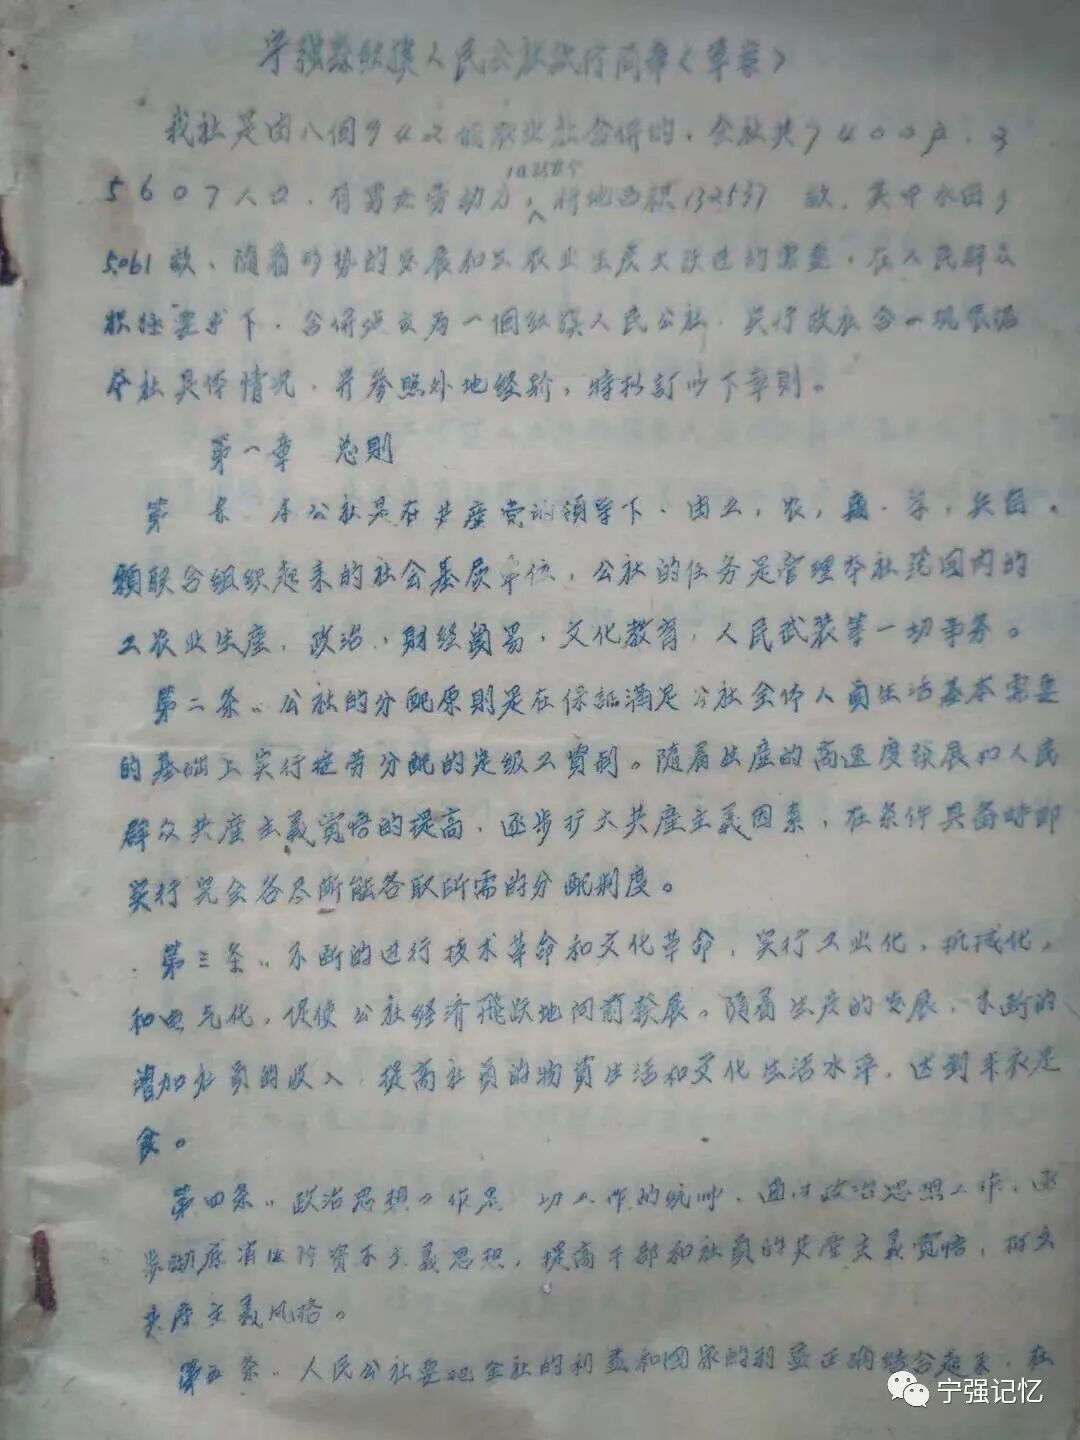 宁强县红旗人民公社试行简章（草案）
我社是由八個乡42個农业社合併的，全社共7400户，3
5607人口，有男女劳动力，耕地面积132537 畝，其中水田
5061畝、随着形势的发展和工农业生产大跃进的需要，在人民群众
积极要求下，合併成立为一個红旗人民公社，实行政社合一，现根据
全社具体情况，并参照外地经验，特拟訂以下章則。
第一章 总則
第 条 本公社是在共産党的领导下、由工，农，商，学，兵自
願联合组织起来的社会基层单位，公社的任务是管理本社范围内的
工农业生産，政治，財经貿易，文化教育，人民武装等一切事务。
第二条：公社的分配原則是在保証满足公社全体人員生活基本需要
的基础上实行按劳分配的定级工資制。随着生産的高速度發展和人民
群众共産主義觉悟的提高，逐步扩大共産主義因素，在条件具备時即
实行完全各尽所能各取所需的分配制度。
第三条：不断的进行技术革命和文化革命，实行工业化，机械化，
和电气化，促使公社经济飛跃地向前發展。随着生产的发展，不断的
增加社員的收入，提高社員的物質生活和文化生活水平，达到丰衣足
食。
第四条：政治思想工作是 切工作的统帅，通过政治思想工作，逐
步彻底消 資本主義思想，提高干部和社員的共産主義觉悟，树立
共産主義风格。
第五条：人民公社要把全社的利益和國家的利益正确结合起来，在
宁强记忆